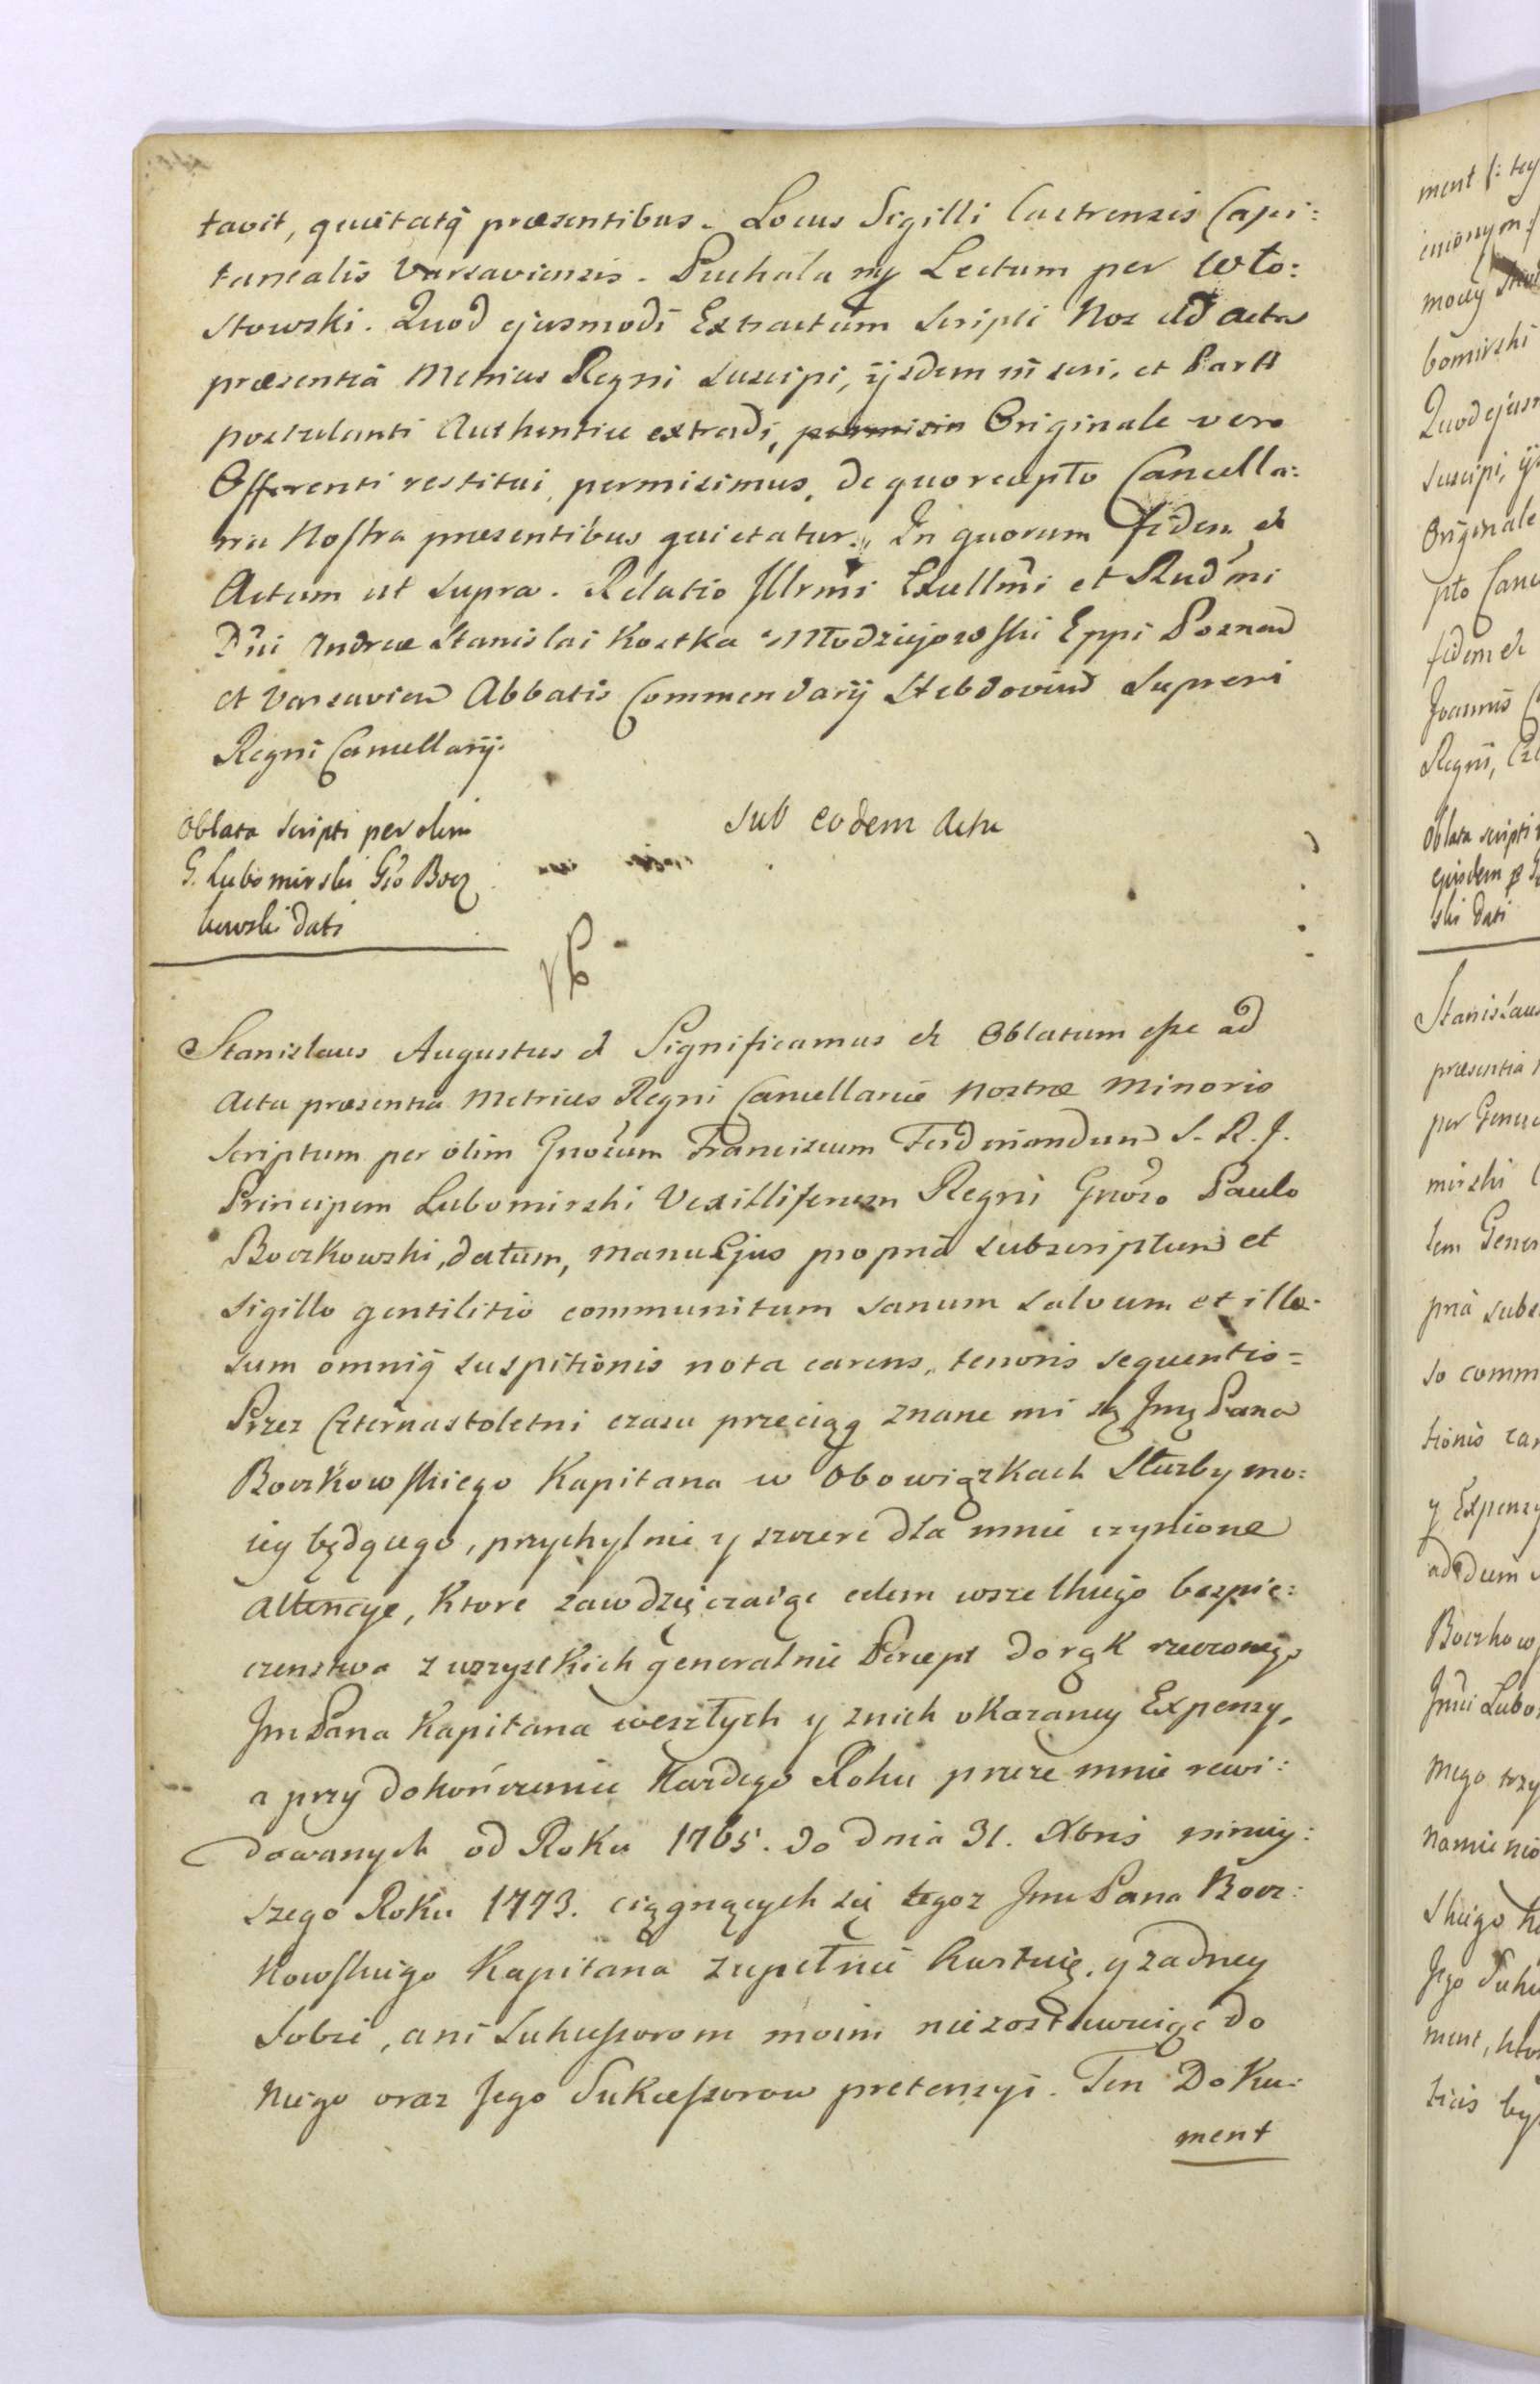 tavit, quietatq̃ præsentibus. Locus Sigilli Castrensis Capi:
tanealis Varsaviensis. Puchala mp Lectum per Wło:
stowski. Quod ejusmodi Extractum Scripti Nos ad acta
præsentia Metrices Regni suscipi, ijsdem inseri, et Parti
postulanti Authentice extradi, Originale vero
Offerenti restitui permisimus, de quo recepto Cancella:
ria Nostra præsentibus quietatur. In quorum fidem et
Actum ut supra. Relatio Illrmi Excellmi et Rudmi
Dñi Andreæ Stanislai Kostka Młodziejowski Eppi Posnan
et Varsavien Abbatis Commendarij Hebdovien Supremi
Regni Cancellarij.
Oblata scripti per olim
G. Lubomirski Gso Bocz
kowski dati
Sub eodem Actu
Stanislaus Augustus et Significamus et Oblatum esse ad
Acta præsentia Metrices Regni Cancellariæ Nostræ Minoris
Scriptum per olim Gnosum Franciscum Ferdinandum S. R. J.
Principem Lubomirski Vexilliferum Regni Gnoso Paulo
Boczkowski, datum, manu Ejus propria subscriptum et
sigillo gentilitio communitum sanum salvum et illæ:
sum omniq̃ suspitionis nota carens, tenoris sequentis =
Przez Czternastoletni czasu przeciąg znane mi są Jmę Pana
Boczkowskiego Kapitana w Obowiązkach Służby mo:
iey będącego, przychylnie y szczere dla mnie czynione
Attencye, Ktore zawdzięczaiąc celem wszelkiego bezpie:
czenstwa z wszystkich generalnie Percept do rąk rzeczonego
Jm Pana Kapitana weszłych y znich okazaney Expensy,
a przy dokończeniu Każdego Roku przeze mnie rewi:
dowanych od Roku 1765. do dnia 31. Xbris niniey:
szego Roku 1773. ciągnących się tegoz Jmć Pana Bocz:
kowskiego Kapitana zupełnie kwituię, y zadney
Sobie, ani Sukcessorom moim niezostawuiąc do
Niego oraz Jego Sukcessorow pretensyi. Ten Doku:
ment